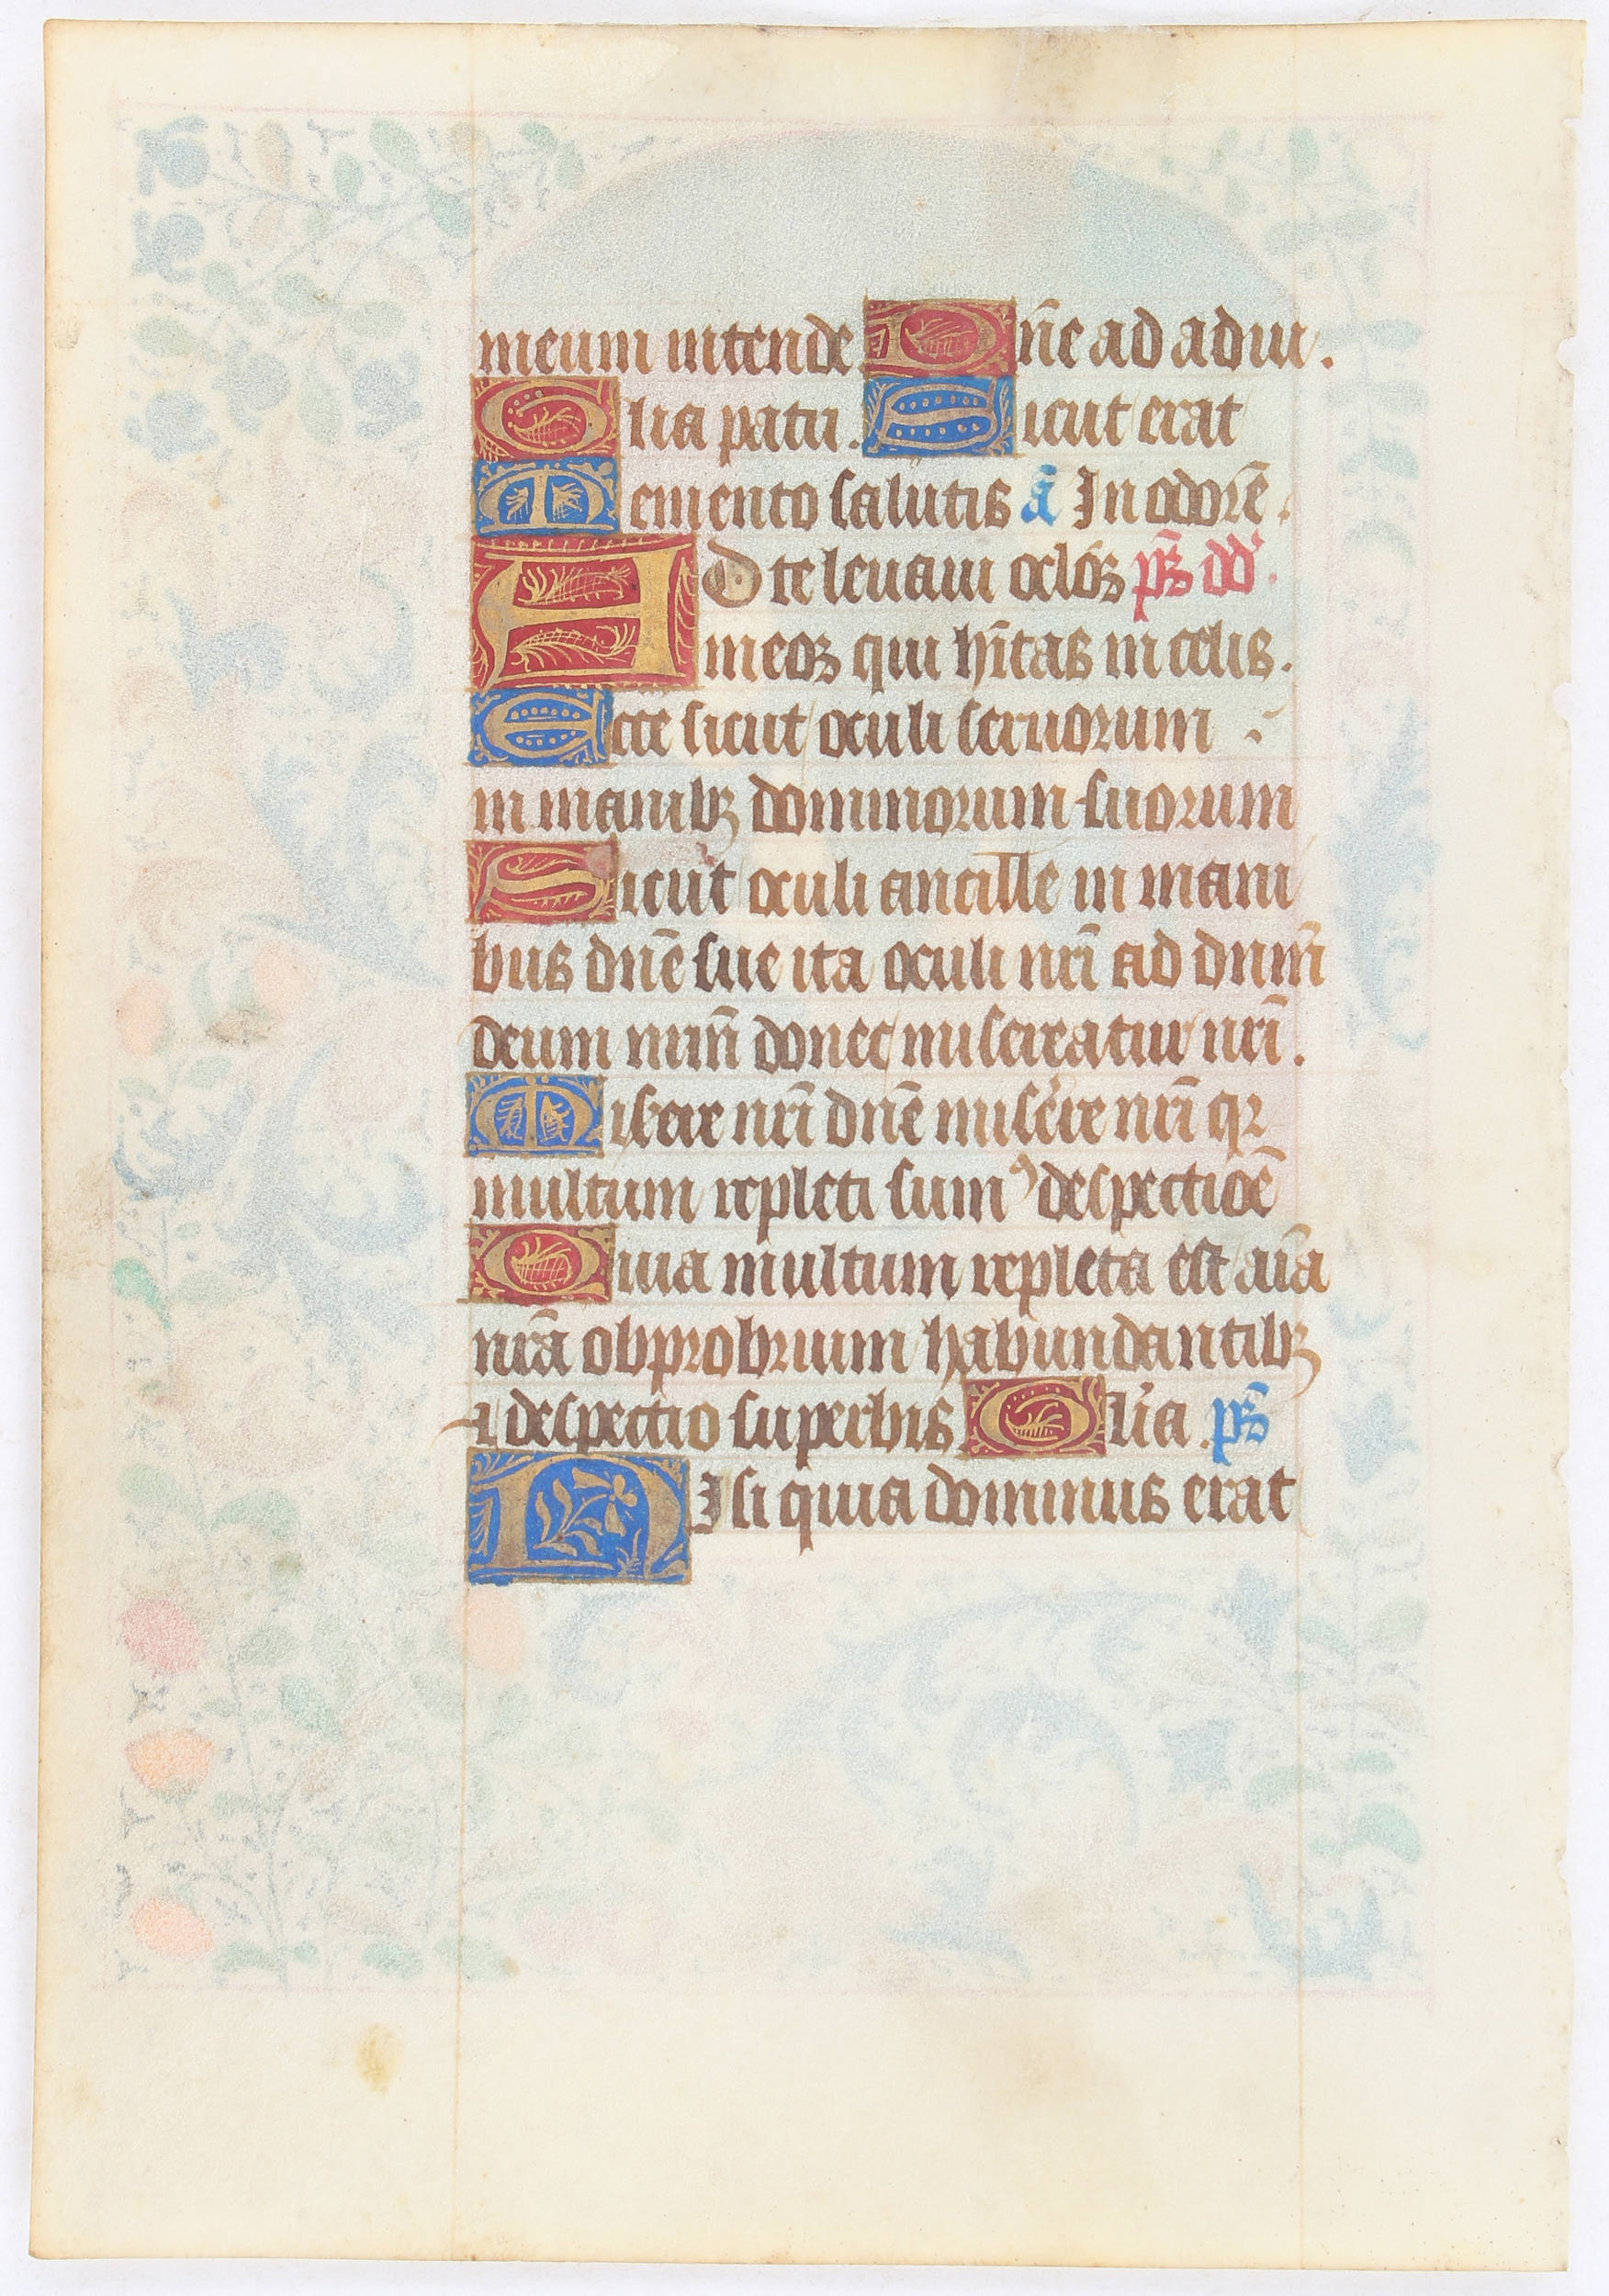 meum intende Dn̄e ad adiu.
Glia patri. Sicut erat
Memento salutis ā In odorē.
AD te leuaui oclōs ps̄ dd̄.
meos qui hītas in celis.
Ecce sicut oculi seruorum
in manibꝫ dominorum suorum
Sicut oculi ancille in mani
bus dn̄e sue ita oculi nrī ad dnm̄
deum nrm̄ donec misereatur nrī.
Misere nrī dn̄e misere nrī qꝛ
multum repleti sumꝰ despectiōe
Quia multum repleta est aīa
nrā obprobrium habundantibꝫ
⁊ despectio superbis Glīa. ps̄
NIsi quia dominus erat